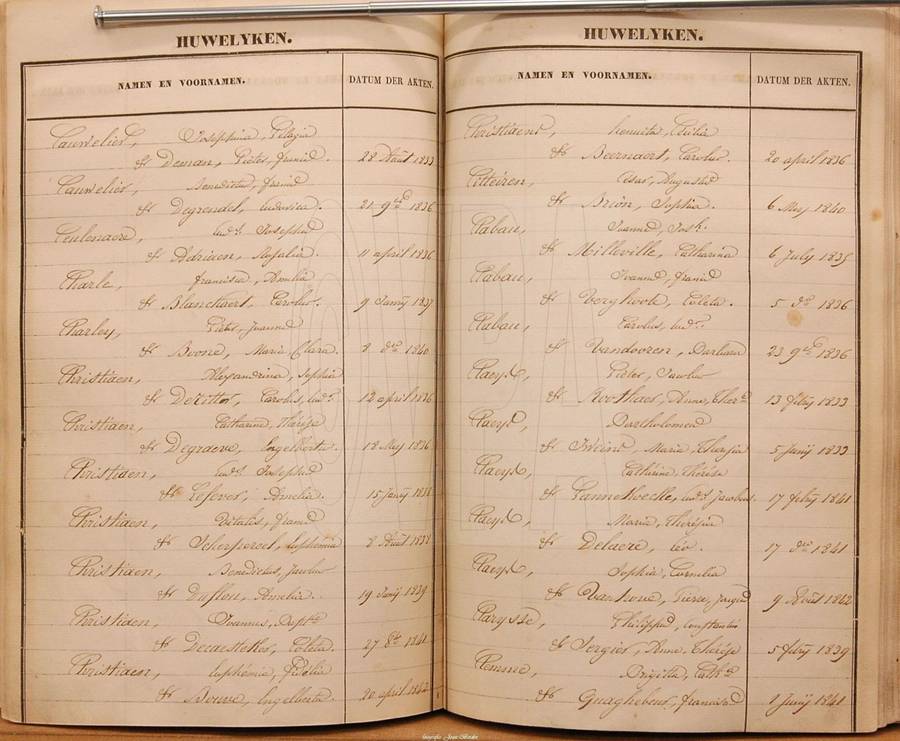 HUWELYKEN.
NAMEN EN VOORNAMEN. DATUM DER AKTEN.
Cauwelier, Josephina Pelagia
& Deman, Pieter, francis. 28 Août 1833
Cauwelier, Benedictus, francis
& Degrendel, Ludovica. 21 9bre 1836
Ceulenaere, Lud. Josephus
& Adriaen, Rosalia. 11 april 1836
Charle, francisca, Amelia
& Blanckaert, Carolus. 9 Junij 1837
Charley, Pieter, Joannes
& Boone, Maria, Clara. 8 do 1840
Christiaen, Alexandrina, Sophia
& Dezitter, Carolus, Lud. 12 april 1836
Christiaen, Catharina, Thérèse
& Degraeve, Engelbertus. 18 Mey 1836
Christiaen, Lud. Josephus
& Lefever, Amelia. 15 Junij 1838
Christiaen, Vitalis, francis
& Scherpereel, Euphémia 8 Août 1838
Christiaen, Benedictus, Jacobus
& Duflou, Amelia. 19 Junij 1839
Christiaen, Joannes, Bapte
& Decaesteker, Coleta. 27 8bre 1841
Christiaen, Euphémia, Fidelia
& Boone, Engelbertus. 20 april 1842
HUWELYKEN.
NAMEN EN VOORNAMEN. DATUM DER AKTEN.
Christiaens, henrietta, Cecilia
& Beernaert, Carolus. 20 april 1836
Cesar, Augustus
& Brion, Sophia. 6 Mey 1840
Clabau, Joannes, Josh.
& Milleville, Catharina 6 July 1835
Clabau, Joannes, francis
& Verghote, Coleta. 5 do 1836
Clabau, Carolus, Lud.
& Vandooren, Barbara 23 9bre 1836
Claeys, Pieter, Jacobus
& Roothaer, Anna, Ther. 13 febry 1833
Claeys, Bartholomeus
& Maria Theresia 5 Junij 1833
Claeys, Cathérine, Thérèse
& Pannekoecke, Lud. Jacobus. 17 febry 1841
Claeys, Maria, Thérésia
& Delaere, Léo. 17 do 1841
Claeys, Sophia, Cornelia
& Vanhoue, Pierre, Jacques 9 Août 1842
Clarysse, Philippus, Constantin
& Sergier, Anna, Thérèse 5 febry 1839
Clemme, Brigitta, Cath.
& Quaghebeur, franciscus 1 Junij 1841